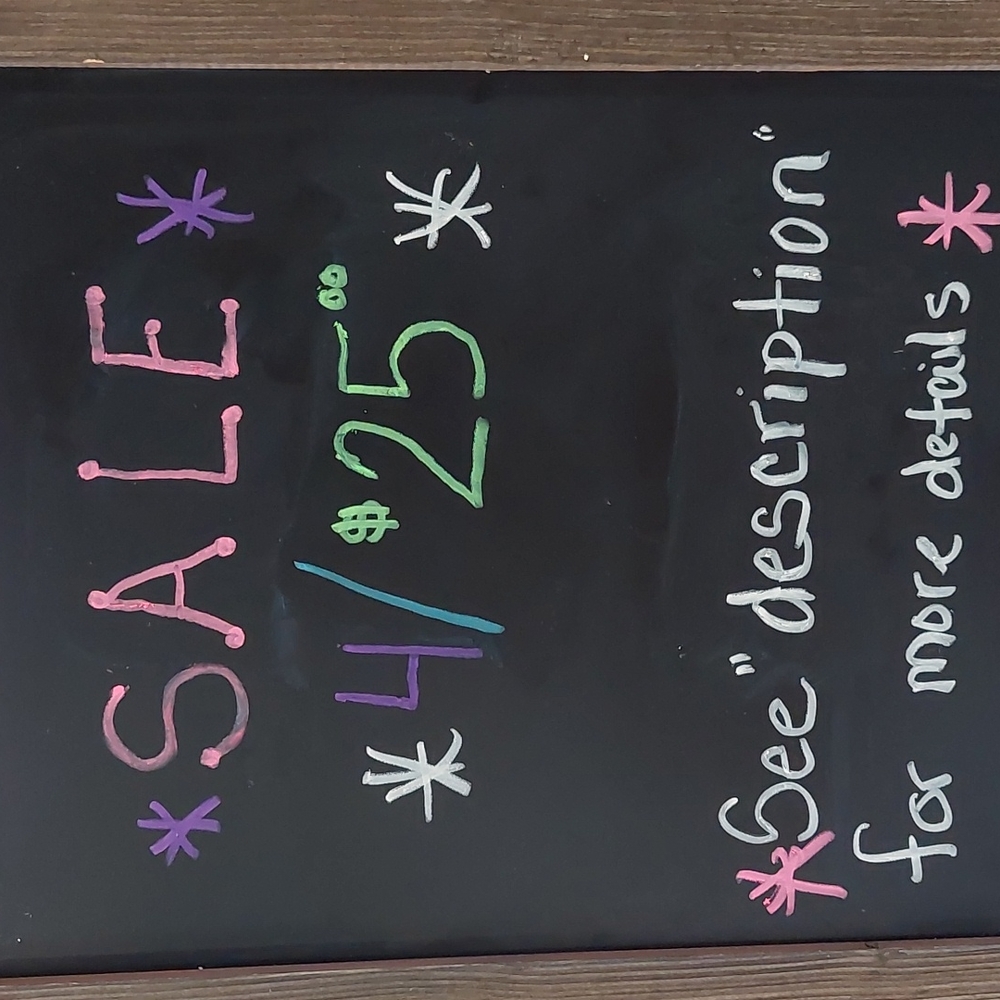 * SALE *
* 4/$25.00 *
*See "description"
for more details *